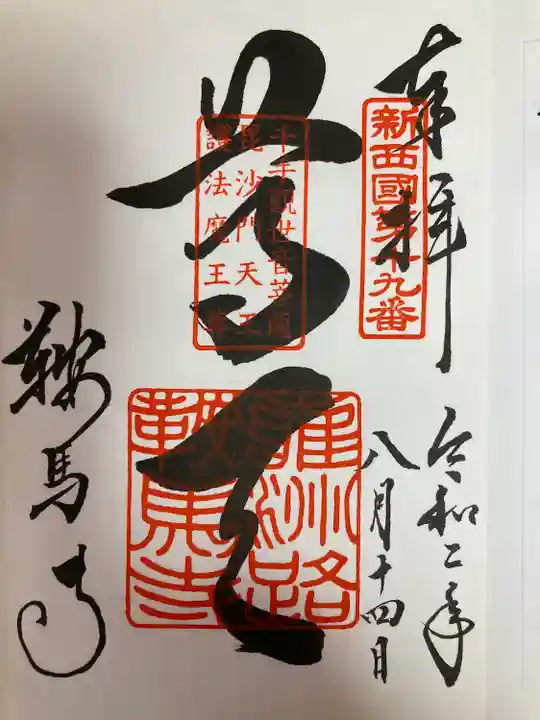 奉拝
新西國第十九番
令和二年
八月十四日
千手観世音菩薩
毘沙門天王
護法魔王尊
尊天
雍州路
鞍馬寺
鞍馬寺